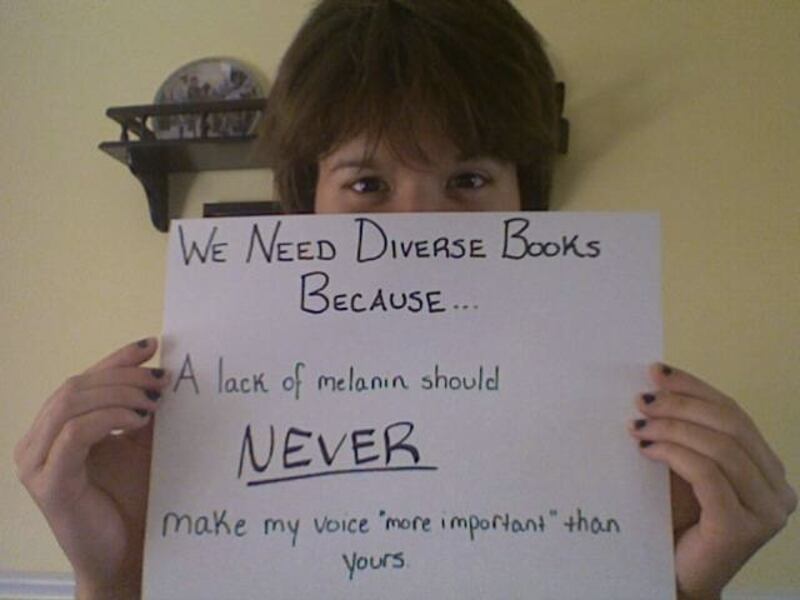 WE NEED DIVERSE BOOKS
BECAUSE...
A lack of melanin should
NEVER
make my voice "more important" than
yours.